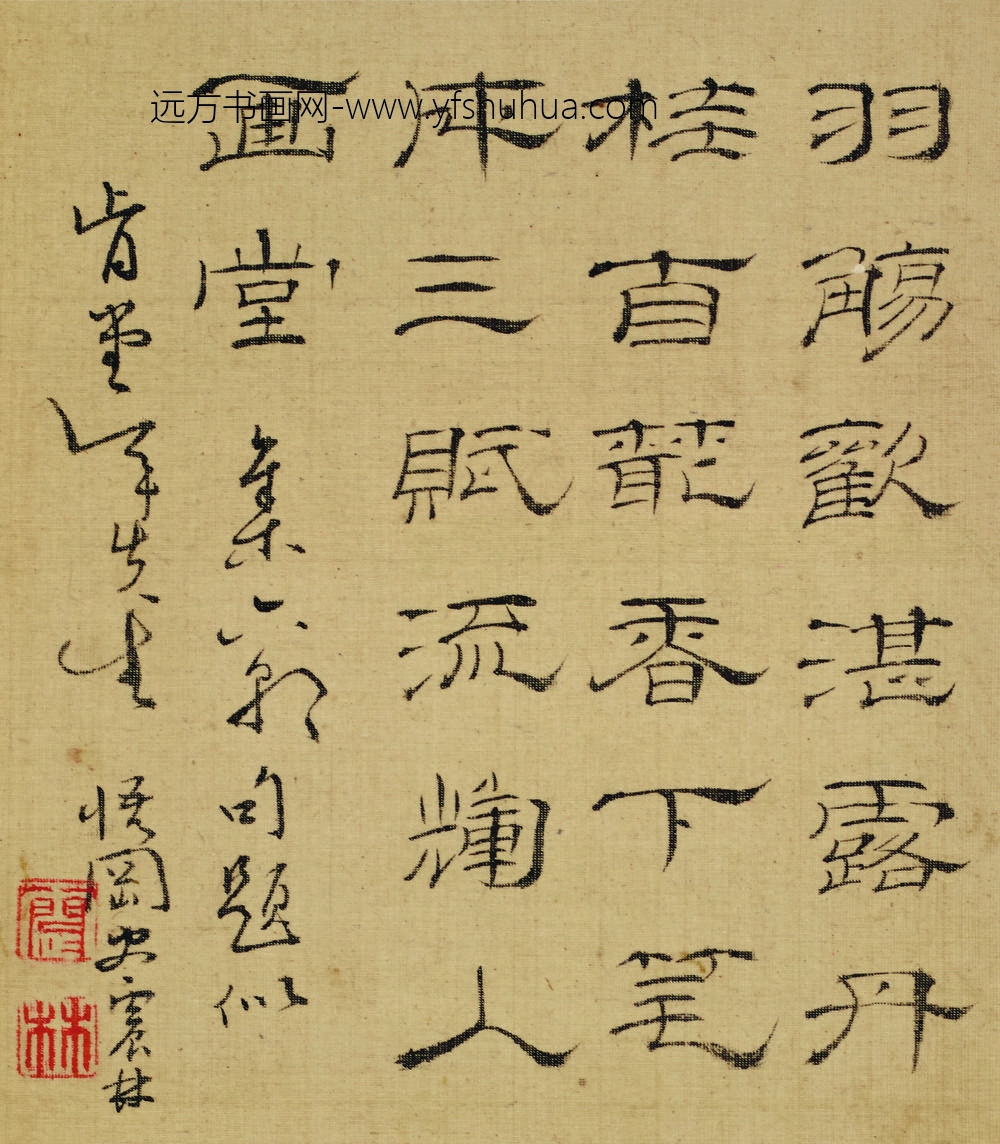 远方书画网-www.yfshuhua.com
羽觴歡湛露丹
桂龍香下笔
三賦流輝入
画堂 集六朝句題似
肯堂年先生 悟岡史震林
林